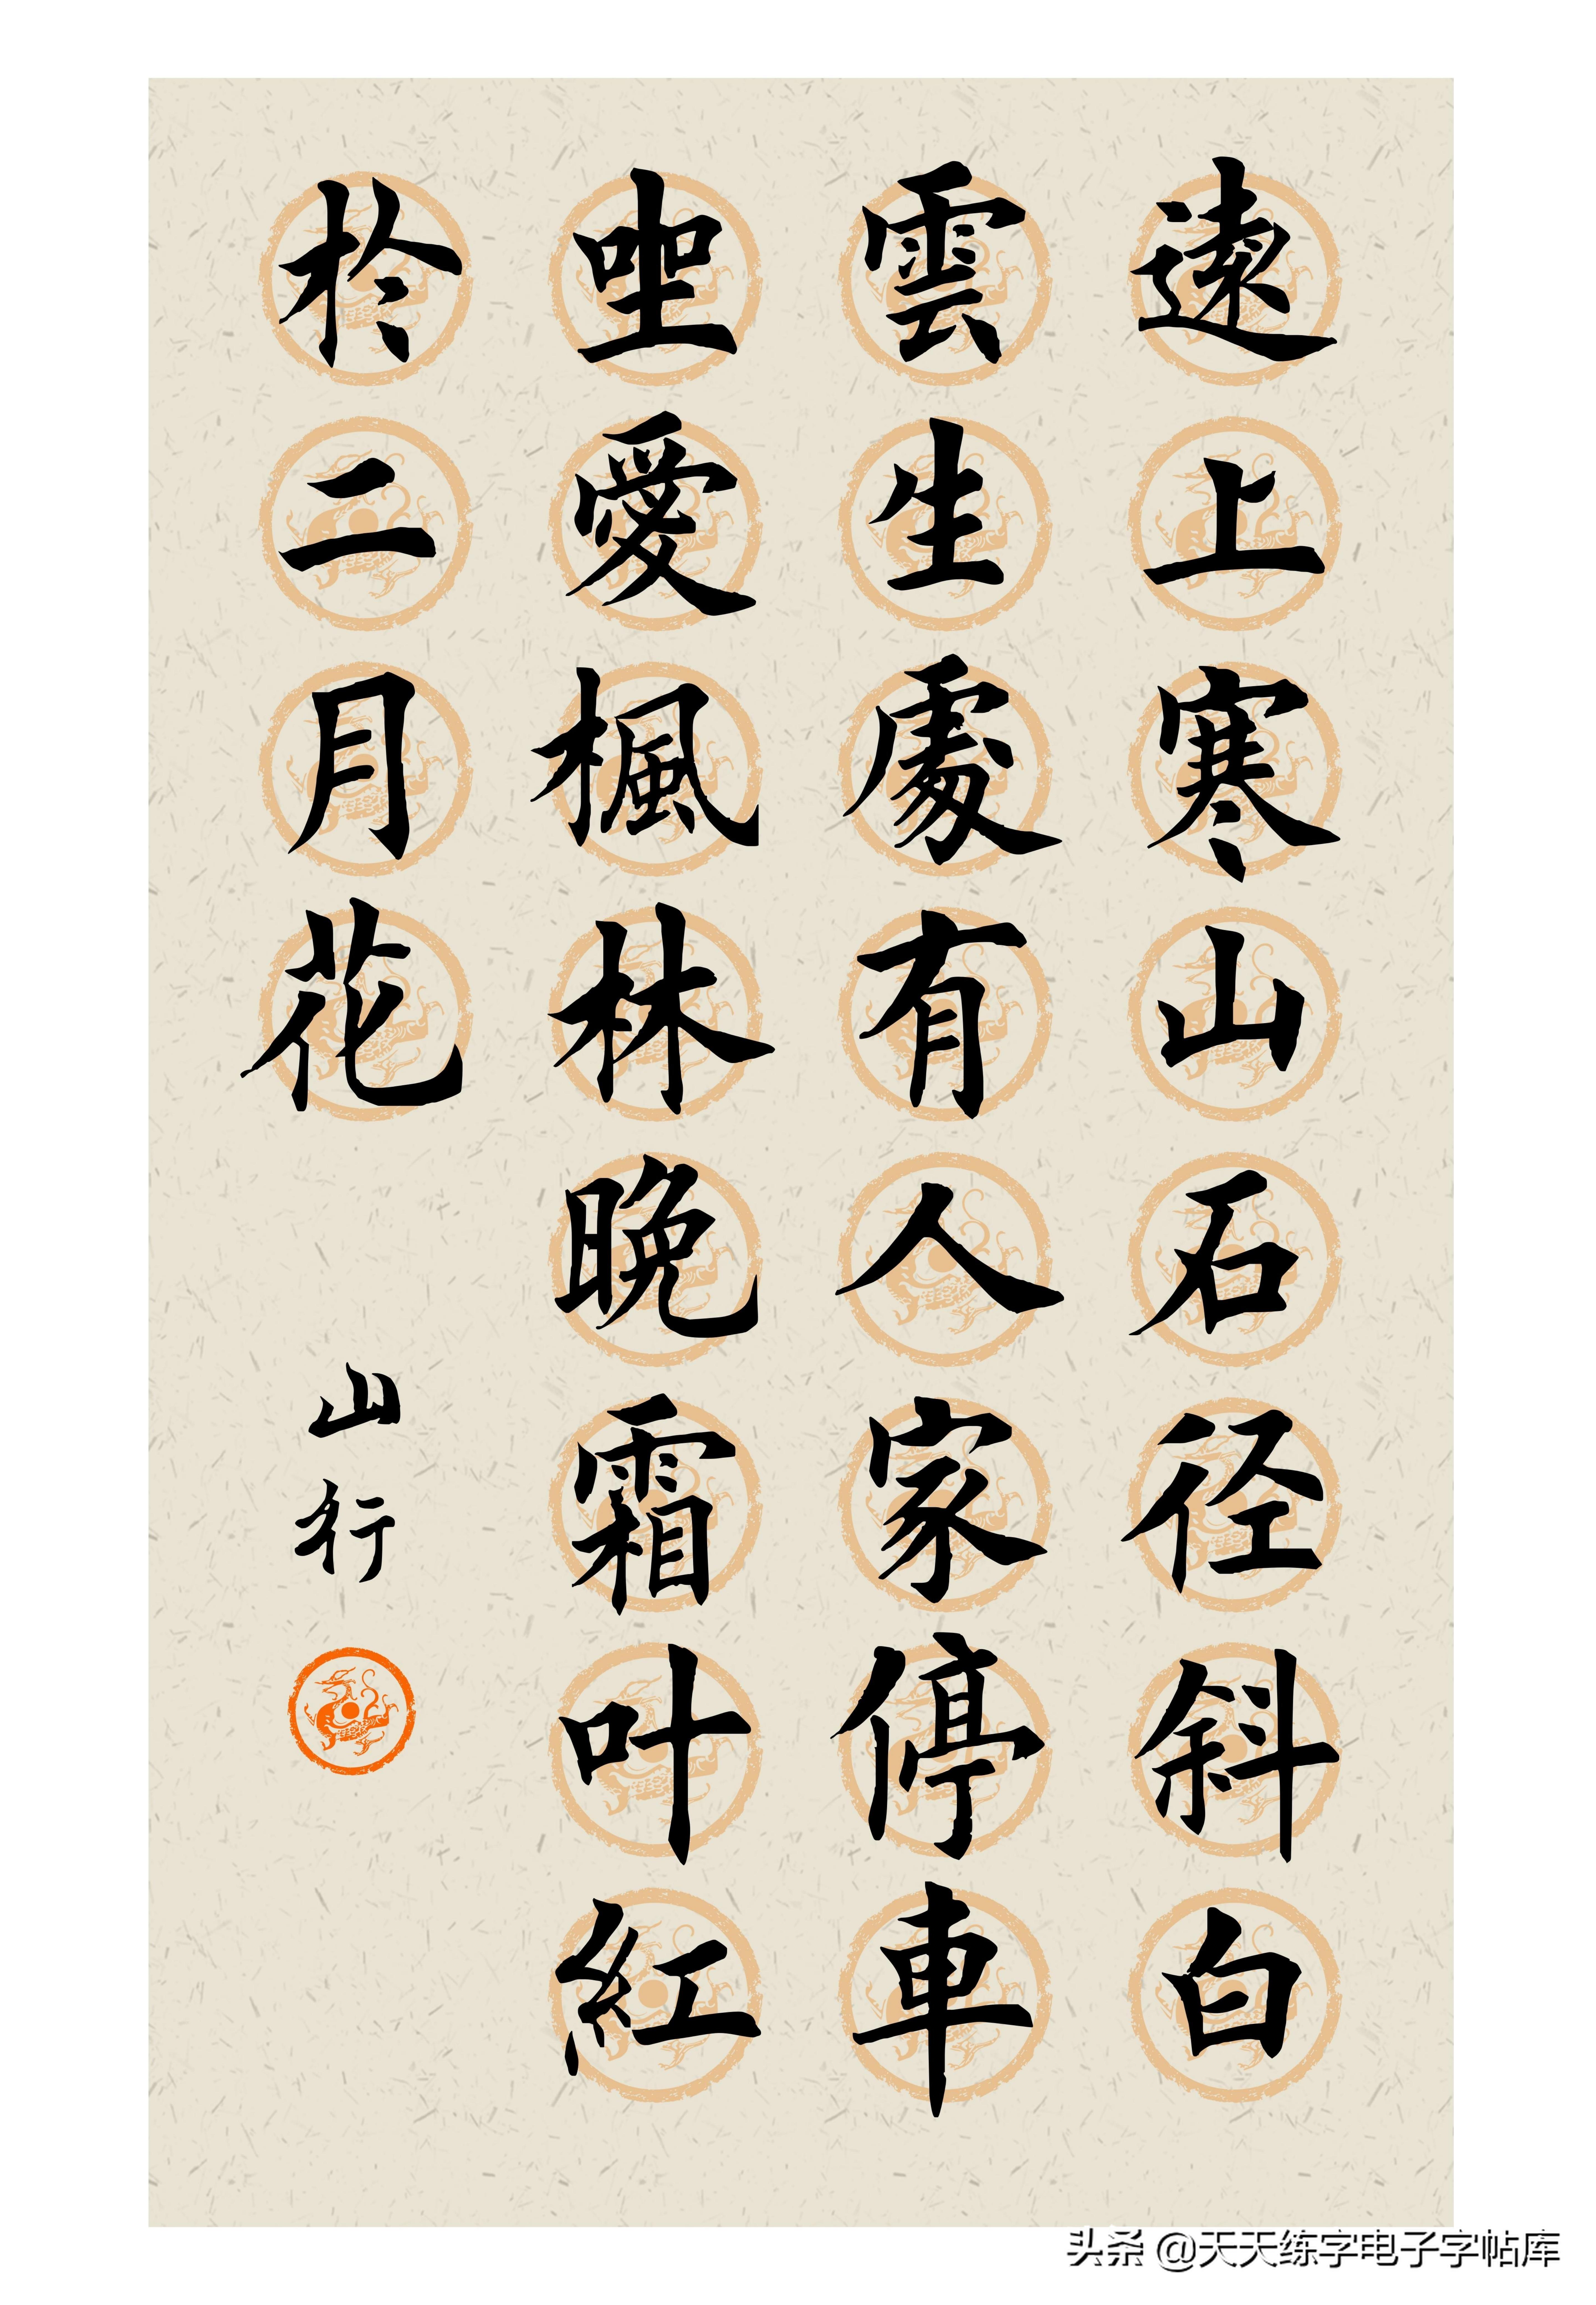 遠上寒山石径斜白
雲生處有人家停車
坐愛楓林晚霜叶紅
於二月花
山行
头条 @天天练字电子字帖库